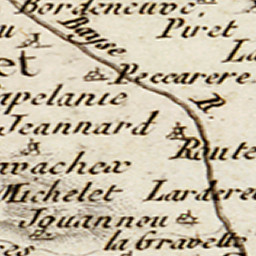 Bordeneuve
Piret
Bayse
et
Peccarere
R.
apelanie
Jeannard
Route
avachex
Michelet
Lardere
Jouanneu
la Gravette
res